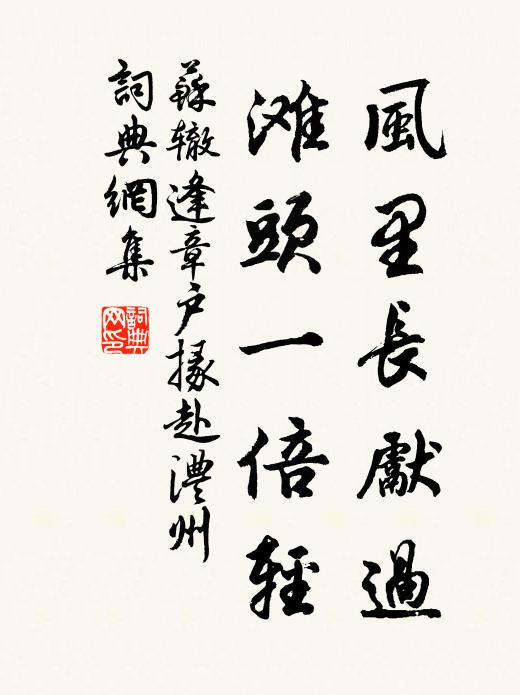 風里長獻過
滩頭一倍輕
蘇辙逢章户掾赴澧州
詞典網集
詞典网印